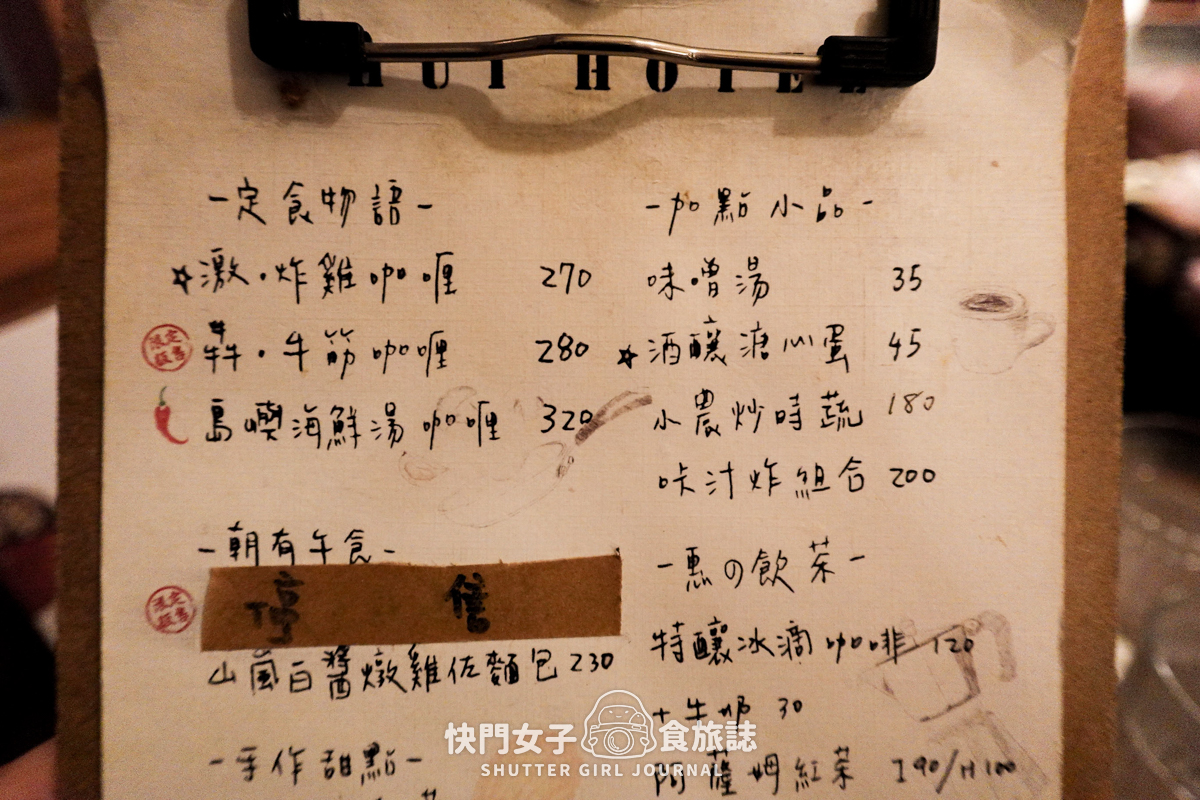 HUI HOTEL
-定食物語-
☆激·炸雞咖喱 270
限定販售
犇·牛筋咖喱 280
島嶼海鮮湯咖喱 320
-朝有午食-
限定販售
停售
山嵐白醬燉雞佐麵包 230
-手作甜點-
-加點小品-
味噌湯 35
☆酒釀溏心蛋 45
小農炒時蔬 180
咔汁炸組合 200
-惠の飲茶-
特釀冰滴咖啡 120
+牛奶 30
阿薩姆紅茶 I90/H100
快門女子食旅誌
SHUTTER GIRL JOURNAL